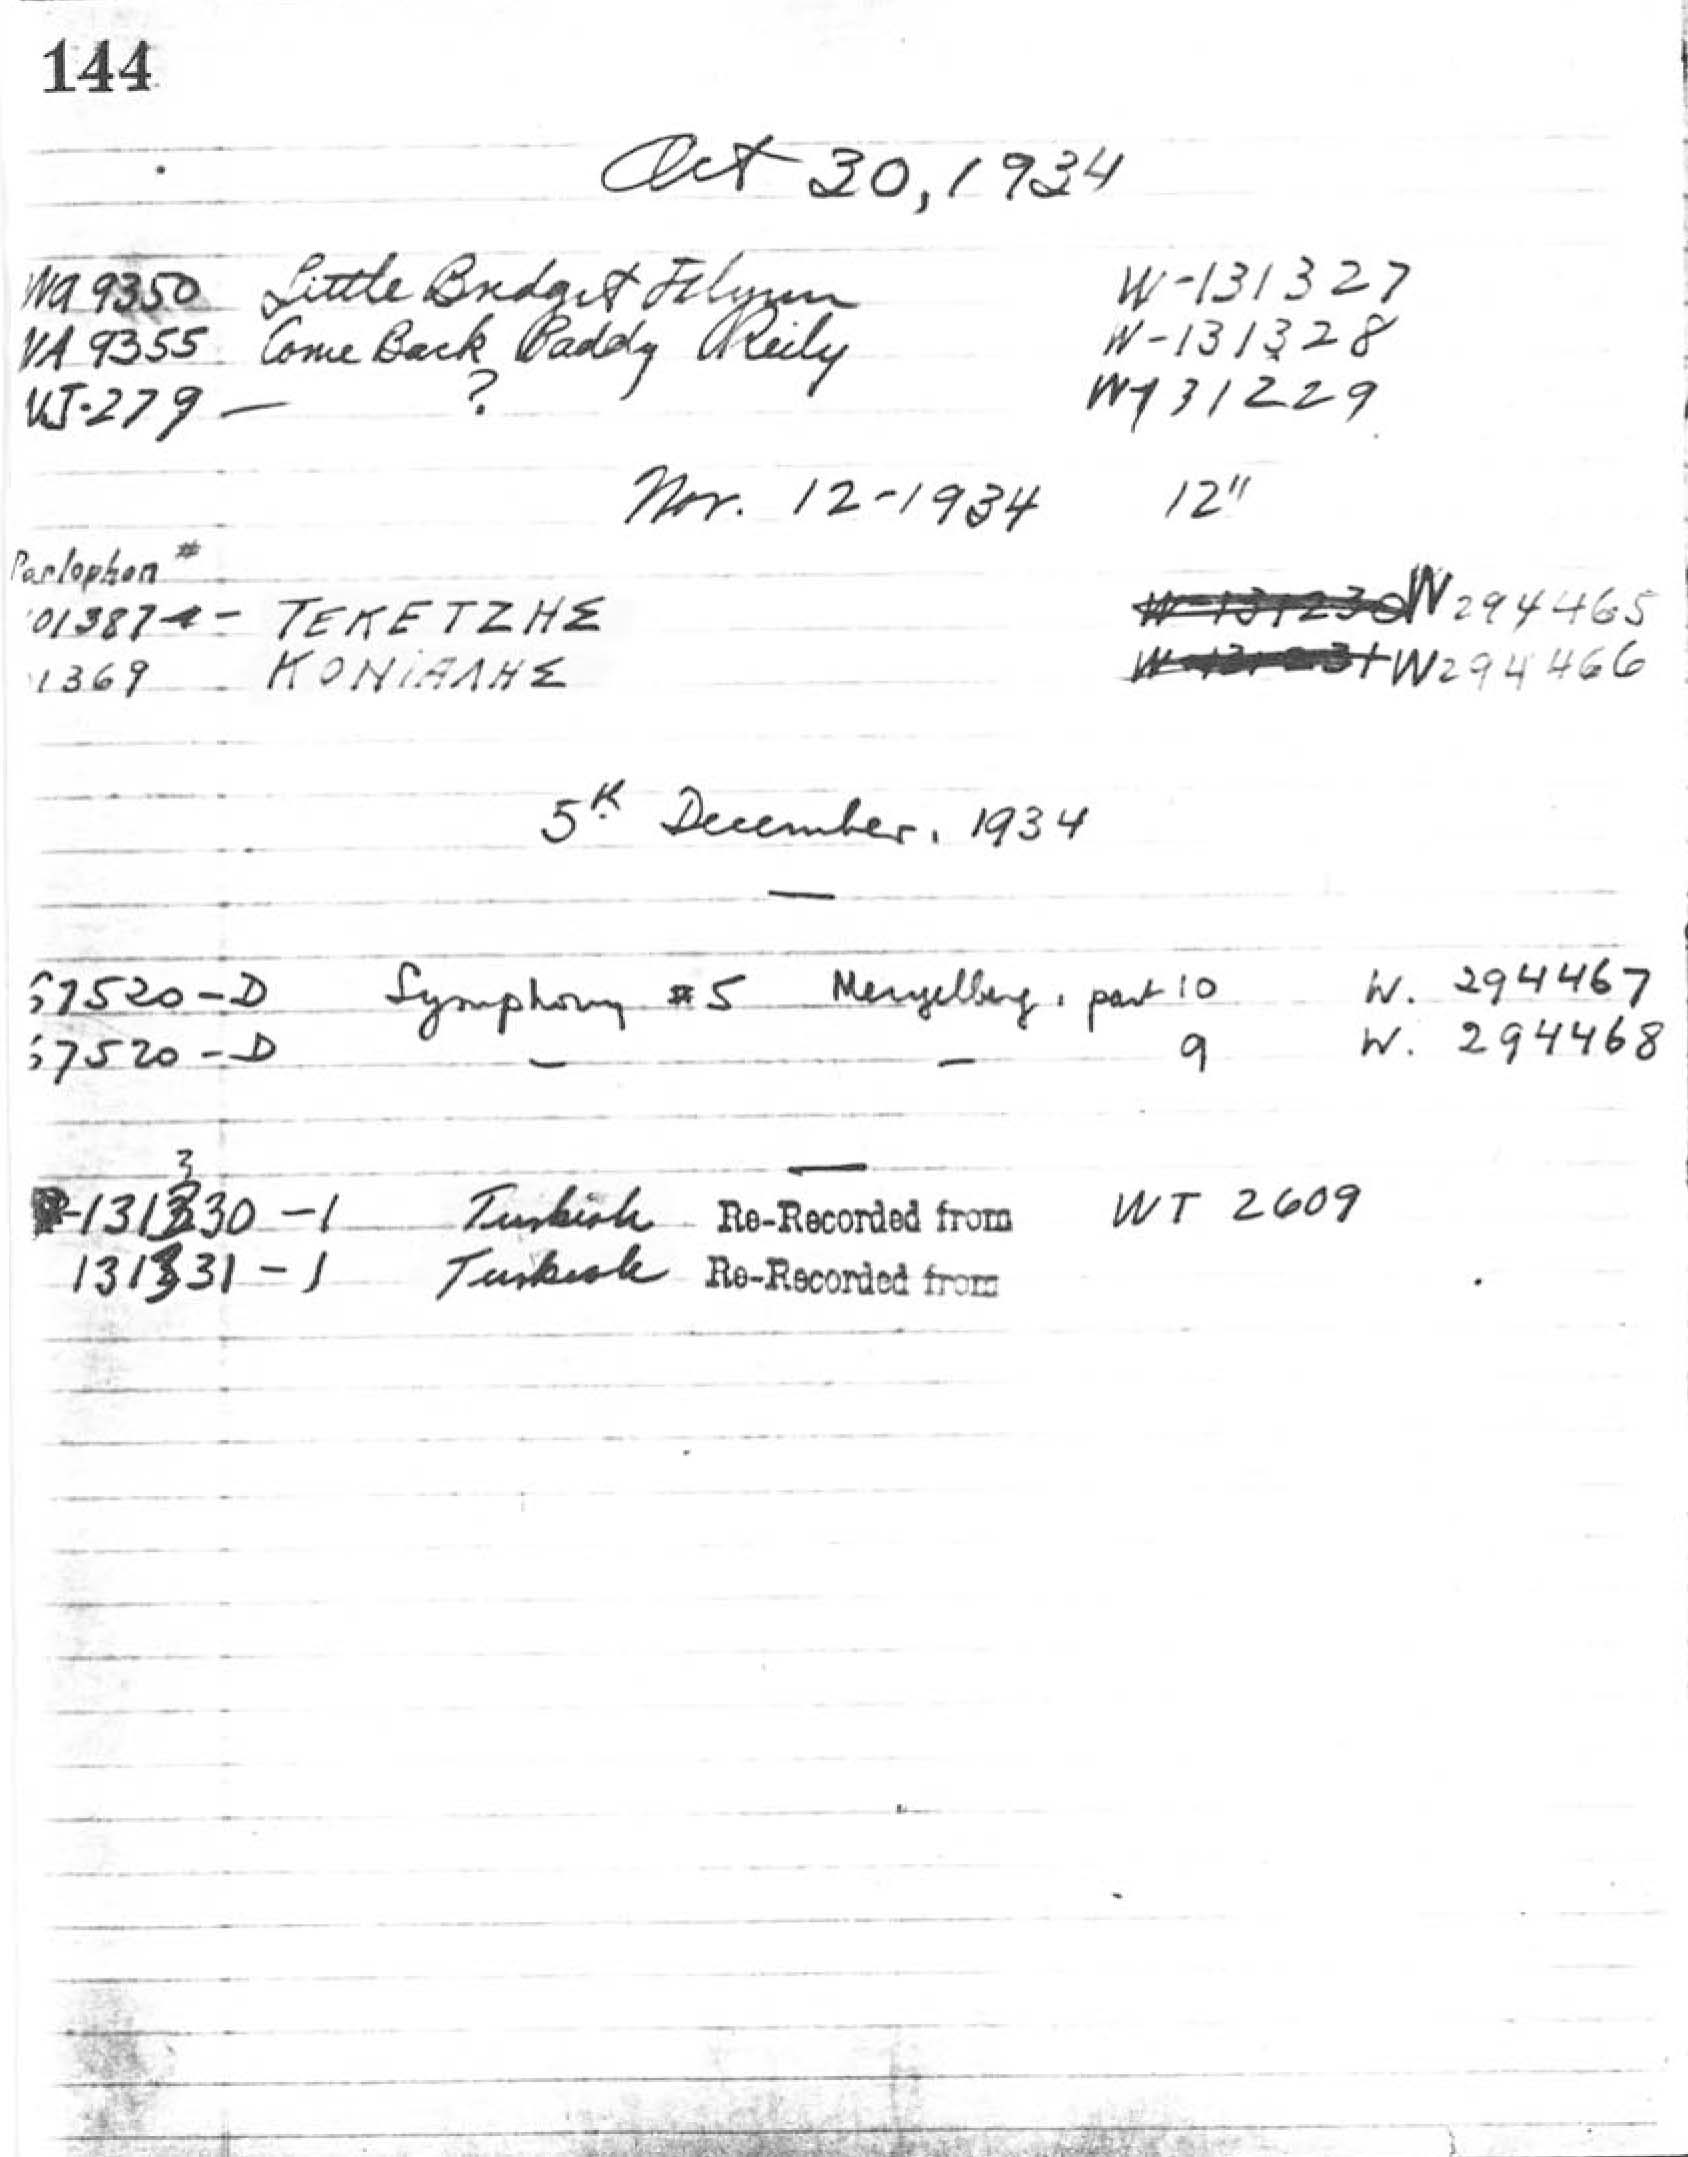 144
Oct 30, 1934
WA 9350 Little Bridget Flynn W-131327
WA 9355 Come Back Paddy Reily W-131328
WJ-279 — ? W131229
Nov. 12-1934 12"
Parlophon #
01387 - ΤΕΚΕΤΖΗΣ W-131230 W294465
1369 ΚΟΝίΑΛΗΣ W294466
5th December. 1934
—
67520-D Symphony #5 Mengelberg. part 10 W. 294467
67520-D — — 9 W. 294468
—
3
-131330-1 Turkish Re-Recorded from WT 2609
131331-1 Turkish Re-Recorded from